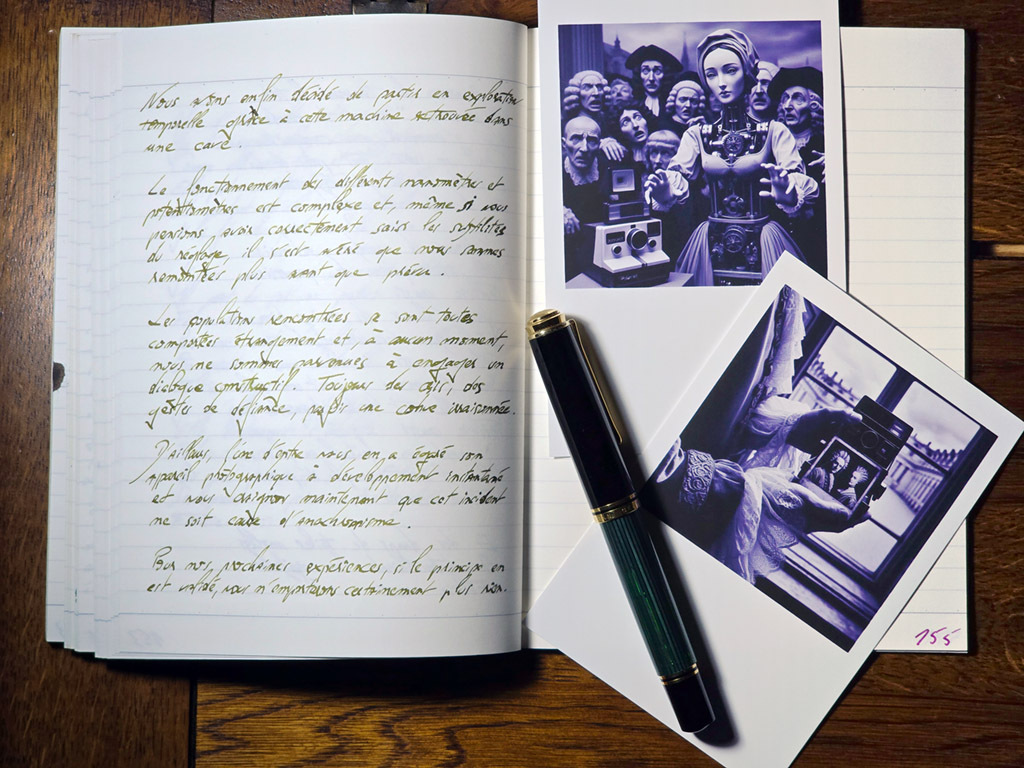 Nous avons enfin décidé de partir en exploration
temporelle grâce à cette machine retrouvée dans
une cave.
Le fonctionnement des différents manomètres et
potentiomètres est complexe et, même si nous
pensions avoir correctement saisi les subtilités
du réglage, il s'est avéré que nous sommes
remontées plus avant que prévu.
Les populations rencontrées se sont toutes
comportées étrangement et, à aucun moment,
nous ne sommes parvenues à engager un
dialogue constructif. Toujours des cris, des
gestes de défiance, parfois une colère irraisonnée.
D'ailleurs, l'une d'entre nous en a égaré son
appareil photographique à développement instantané
et nous craignons maintenant que cet incident
ne soit cause d'anachronisme.
Pour nos prochaines expériences, si le principe en
est validé, nous n'emporterons certainement plus rien.
155